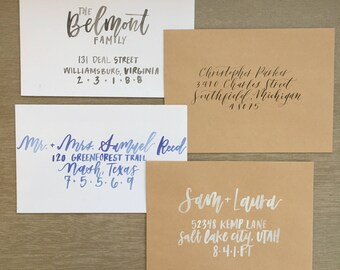 THE
Belmont
FAMILY
131 DEAL STREET
WILLIAMSBURG, VIRGINIA
2 • 3 • 1 • 8 • 8
Christopher Parker
Charles Street
Southfield, Michigan
Mr. + Mrs. Samuel Reed
120 GREENFOREST TRAIL
Texas
7 • 5 • 5 • 6 • 9
Sam + Laura
52348 KEMP LANE
Salt lake city, UTAH